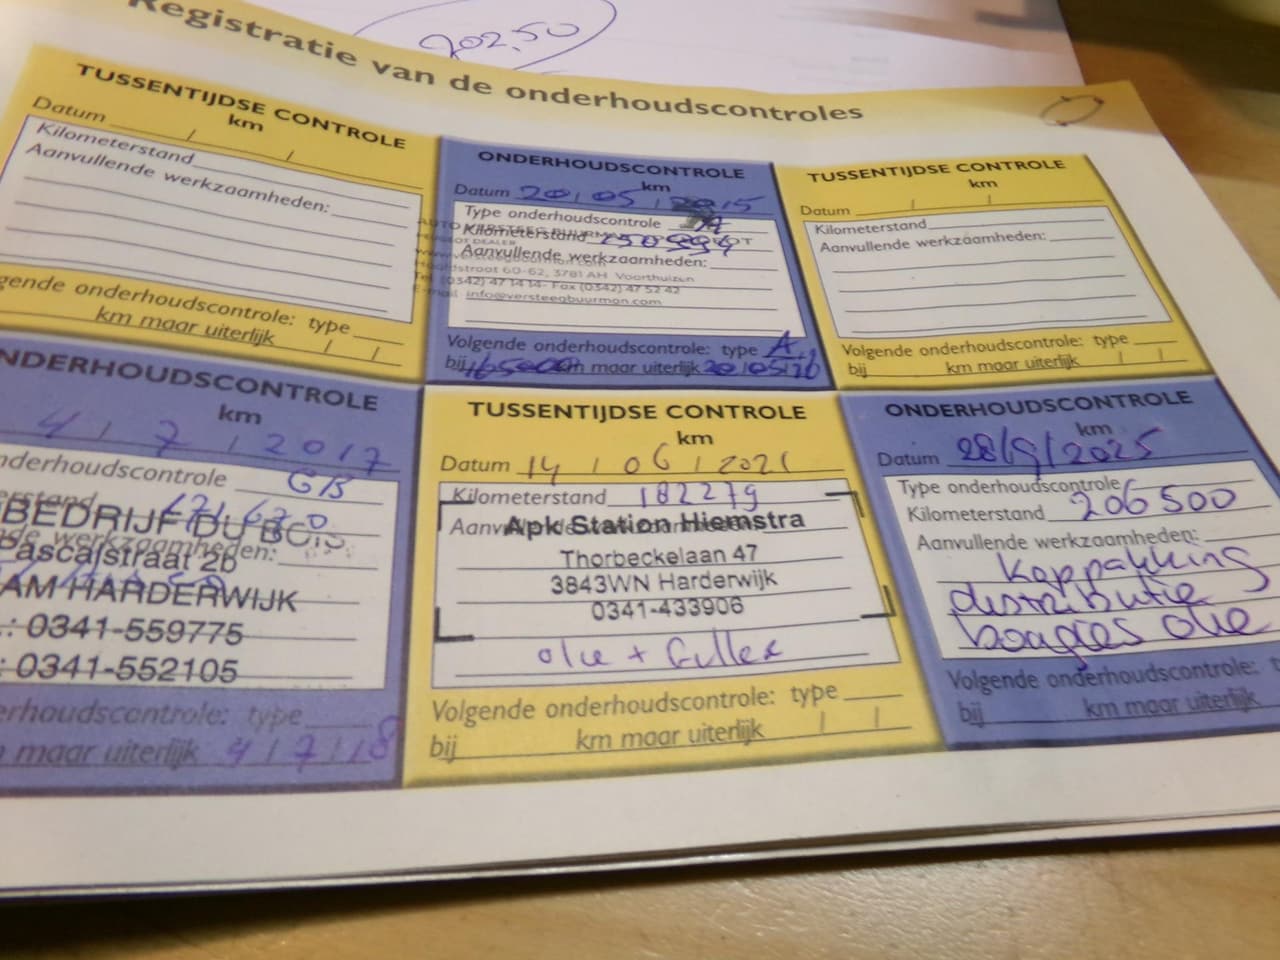 202,50
Registratie van de onderhoudscontroles
TUSSENTIJDSE CONTROLE
km
Datum / /
Kilometerstand
Aanvullende werkzaamheden:
gende onderhoudscontrole: type
km maar uiterlijk / /
ONDERHOUDSCONTROLE
km
Datum 20/05/2015
Type onderhoudscontrole A
Kilometerstand
Aanvullende werkzaamheden:
PEUGEOT DEALER
www.versteegbuurman.com
Hoofdstraat 60-62, 3781 AH Voorthuizen
Tel. (0342) 47 14 14 - Fax (0342) 47 52 42
E-mail info@versteegbuurman.com
Volgende onderhoudscontrole: type A
bij 165000 km maar uiterlijk 20/05/16
TUSSENTIJDSE CONTROLE
km
Datum / /
Kilometerstand
Aanvullende werkzaamheden:
Volgende onderhoudscontrole: type
bij km maar uiterlijk / /
NDERHOUDSCONTROLE
km
4 / 7 / 2017
nderhoudscontrole GB
erstand
BEDRIJF DU BOIS
de werkzaamheden:
Pascalstraat 2b
AM HARDERWIJK
.: 0341-559775
: 0341-552105
erhoudscontrole: type
maar uiterlijk 4/7/18
TUSSENTIJDSE CONTROLE
km
Datum 14 / 06 / 2021
Kilometerstand 182279
Apk Station Hiemstra
Thorbeckelaan 47
3843WN Harderwijk
0341-433906
olie + Filter
Volgende onderhoudscontrole: type
bij km maar uiterlijk / /
ONDERHOUDSCONTROLE
km
Datum 28/9/2025
Type onderhoudscontrole
Kilometerstand 206500
Aanvullende werkzaamheden:
Koppakking
distributie
bougies olie
Volgende onderhoudscontrole: t
bij km maar uiterlijk